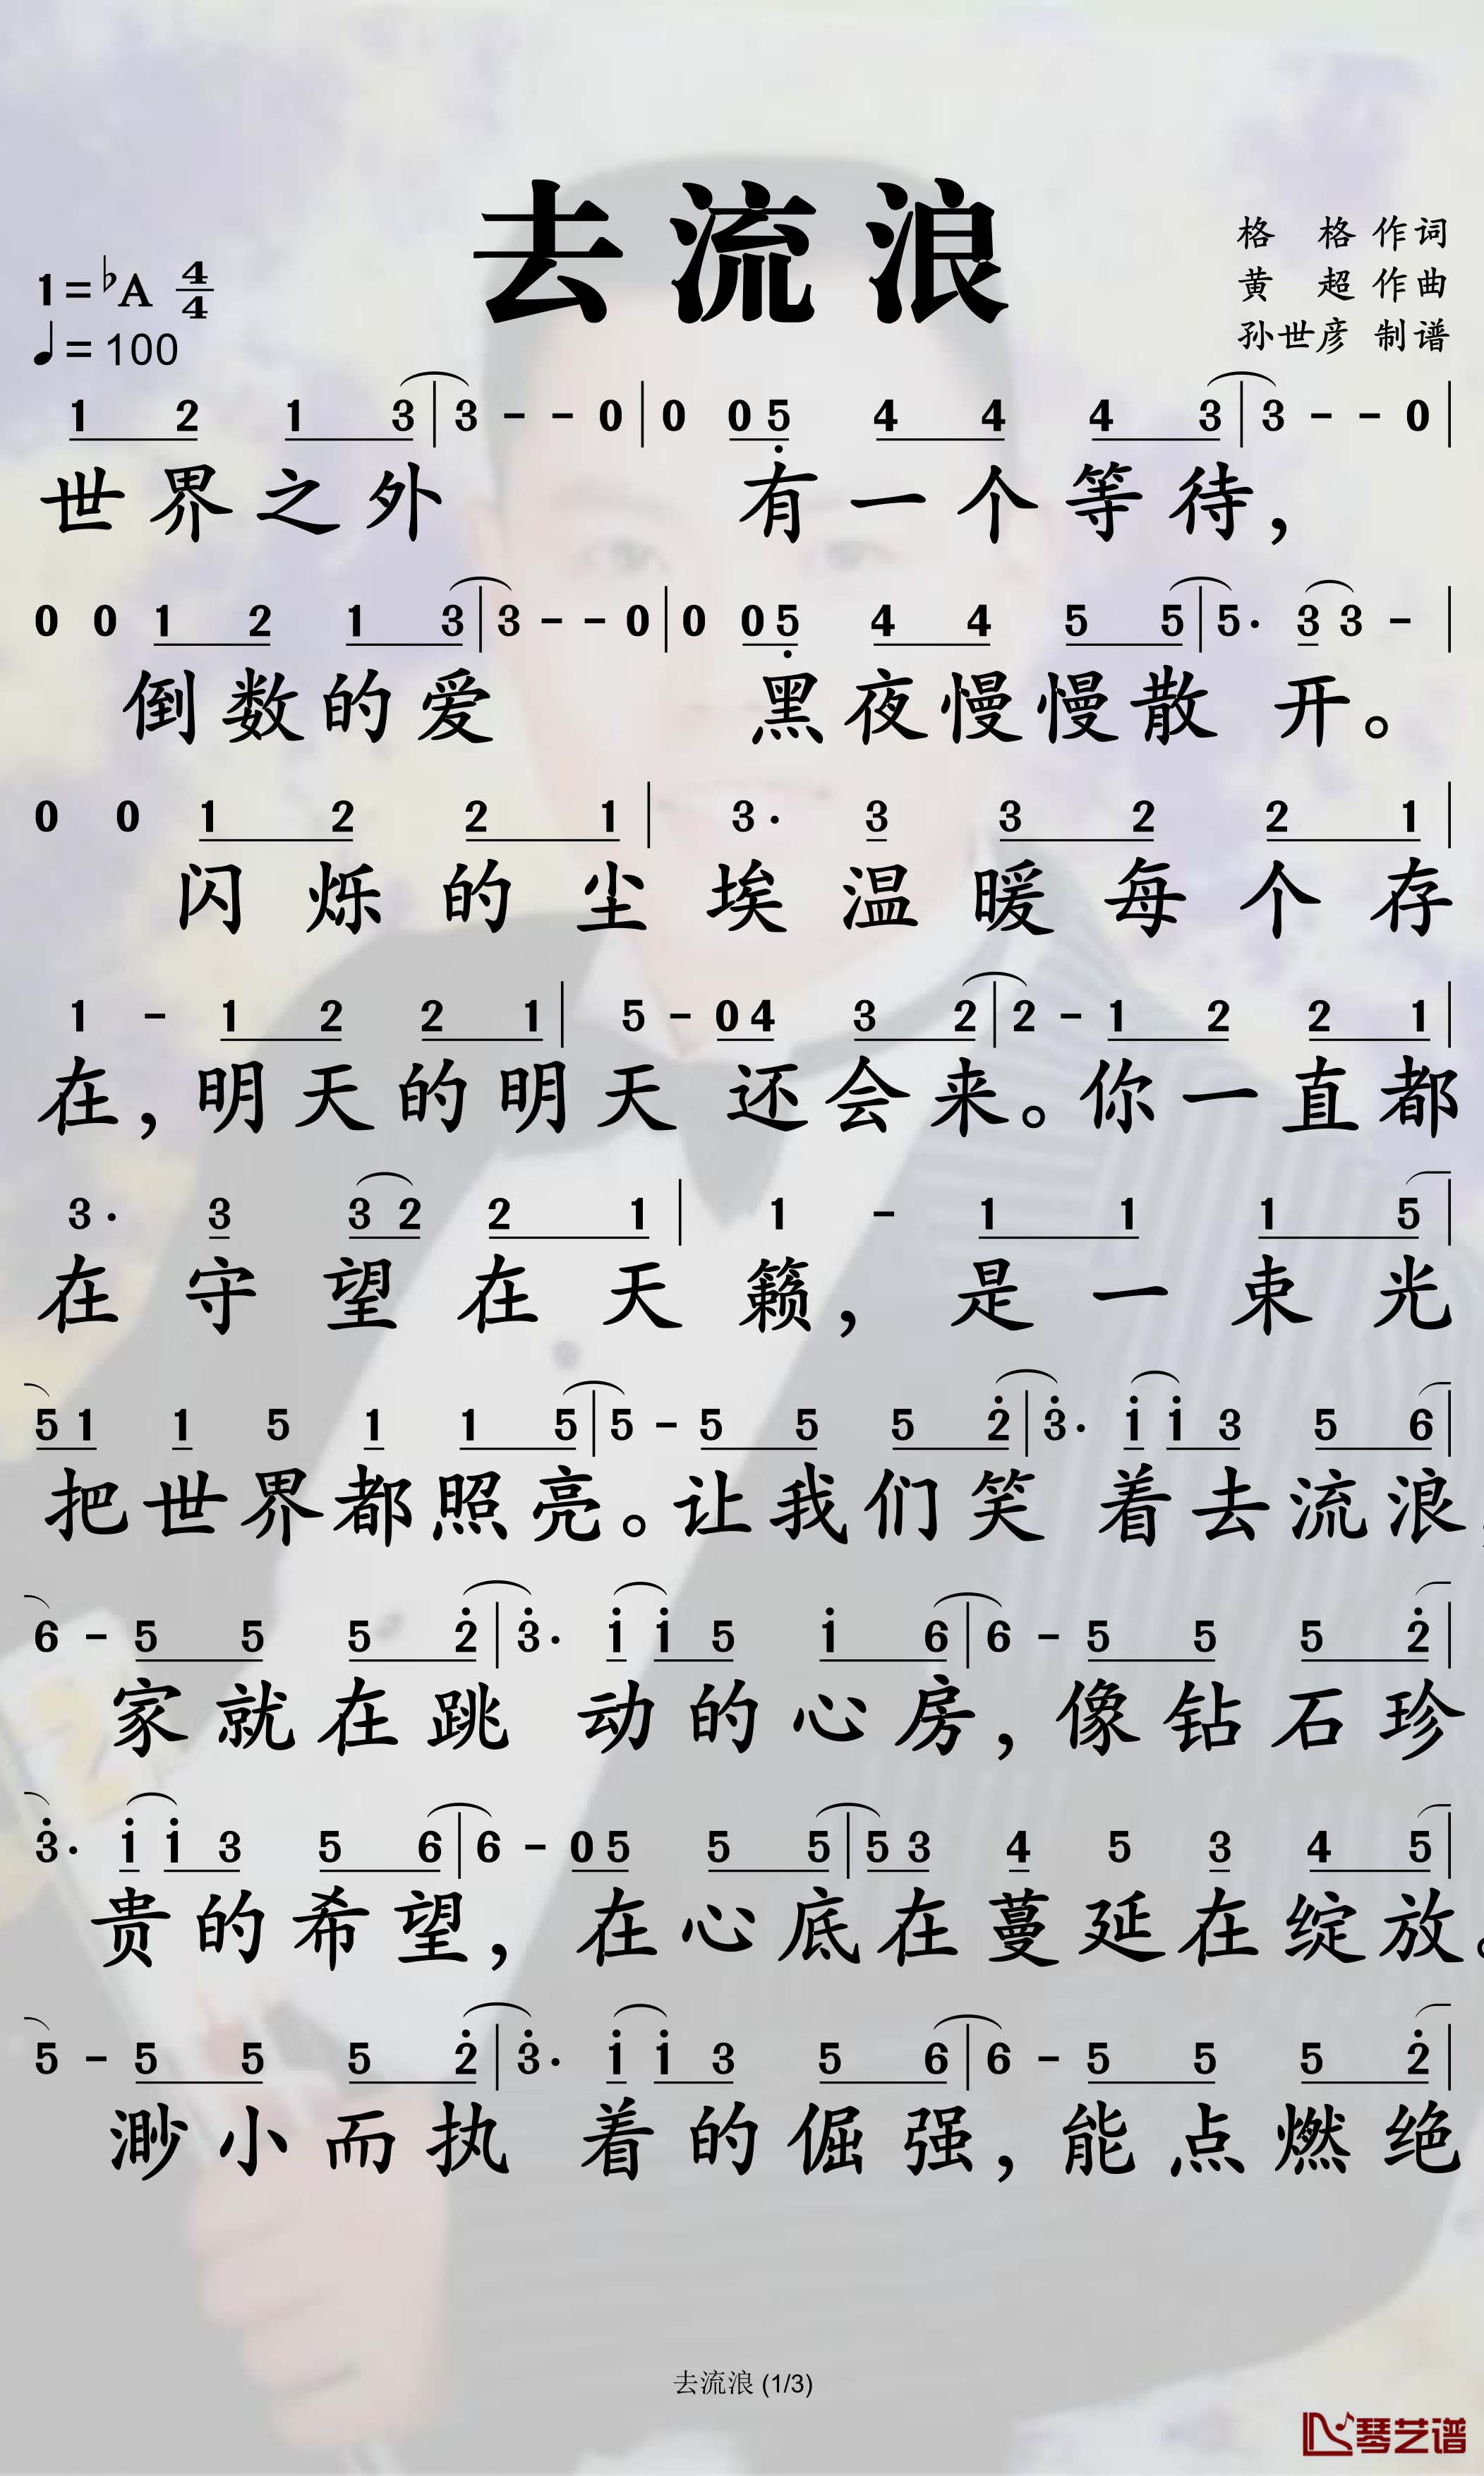 去流浪
格 格 作词
黄 超 作曲
孙世彦 制谱
1=♭A 4/4
♩=100
1 2 1 3 | 3 - - 0 | 0 0 5̣ 4 4 4 3 | 3 - - 0 |
世界之外 有一个等待,
0 0 1 2 1 3 | 3 - - 0 | 0 0 5̣ 4 4 5 5 | 5· 3 3 - |
倒数的爱 黑夜慢慢散 开。
0 0 1 2 2 1 | 3· 3 3 2 2 1 |
闪烁的尘埃温暖每个存
1 - 1 2 2 1 | 5 - 0 4 3 2 | 2 - 1 2 2 1 |
在,明天的明天 还会来。你一直都
3· 3 3 2 2 1 | 1 - 1 1 1 5 |
在守望在天籁,是一束光
5 1 1 5 1 1 5 | 5 - 5 5 5 2̇ | 3̇· 1̇ 1̇ 3 5 6 |
把世界都照亮。让我们笑 着去流浪,
6 - 5 5 5 2̇ | 3̇· 1̇ 1̇ 5 1̇ 6 | 6 - 5 5 5 2̇ |
家就在跳 动的心房,像钻石珍
3̇· 1̇ 1̇ 3 5 6 | 6 - 0 5 5 5 | 5 3 4 5 3 4 5 |
贵的希望,在心底在蔓延在绽放。
5 - 5 5 5 2̇ | 3̇· 1̇ 1̇ 3 5 6 | 6 - 5 5 5 2̇ |
渺小而执 着的倔强,能点燃绝
去流浪 (1/3)
琴艺谱